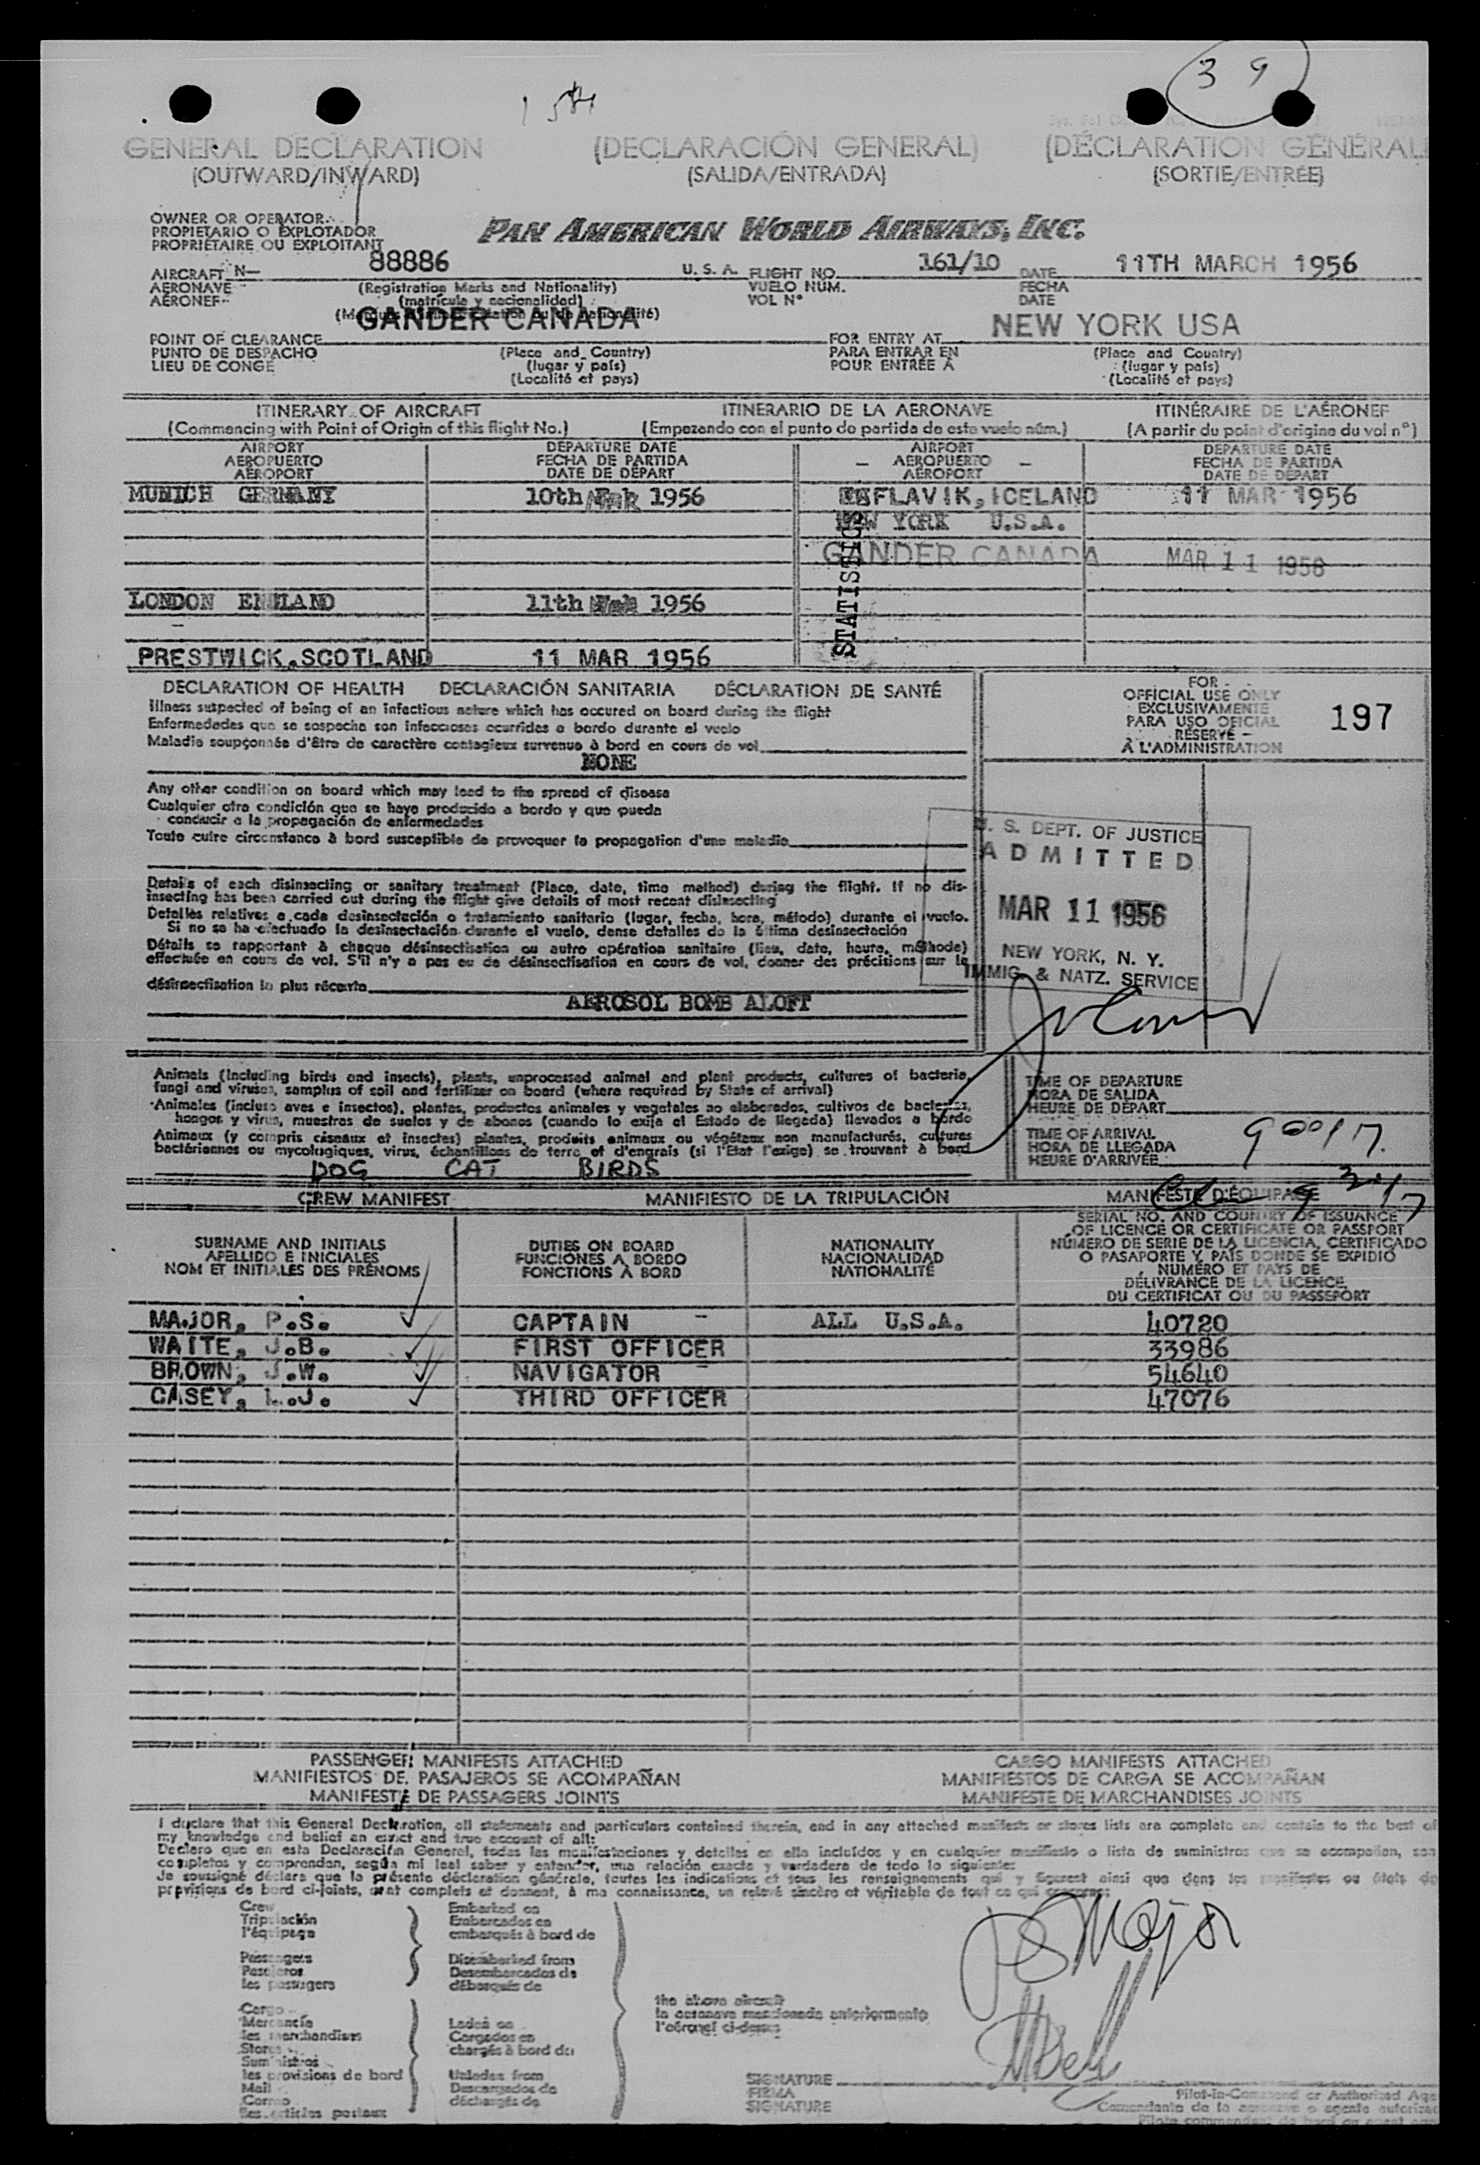 39
15th
GENERAL DECLARATION (DECLARACIÓN GENERAL) (DÉCLARATION GÉNÉRALE
(OUTWARD/INWARD) (SALIDA/ENTRADA) (SORTIE/ENTRÉE)
OWNER OR OPERATOR
PROPIETARIO O EXPLOTADOR
PROPRIÉTAIRE OU EXPLOITANT
PAN AMERICAN WORLD AIRWAYS, INC.
AIRCRAFT N— 88886 U. S. A. FLIGHT NO. 161/10 DATE 11TH MARCH 1956
AERONAVE (Registration Marks and Nationality) VUELO NUM. FECHA
AÉRONEF (matrícula y nacionalidad) VOL N° DATE
GANDER CANADA NEW YORK USA
POINT OF CLEARANCE FOR ENTRY AT
PUNTO DE DESPACHO (Place and Country) PARA ENTRAR EN (Place and Country)
LIEU DE CONGE (lugar y país) POUR ENTRÉE A (lugar y país)
(Localité et pays) (Localité et pays)
ITINERARY OF AIRCRAFT ITINERARIO DE LA AERONAVE ITINÉRAIRE DE L'AÉRONEF
(Commencing with Point of Origin of this flight No.) (Empezando con el punto de partida de este vuelo núm.) (A partir du point d'origine du vol n°)
AIRPORT DEPARTURE DATE AIRPORT DEPARTURE DATE
AEROPUERTO FECHA DE PARTIDA AEROPUERTO FECHA DE PARTIDA
AÉROPORT DATE DE DÉPART AÉROPORT DATE DE DÉPART
MUNICH GERMANY 10th MAR 1956 KEFLAVIK, ICELAND 11 MAR 1956
NEW YORK U.S.A.
GANDER CANADA MAR 11 1956
STATISTICS
LONDON ENGLAND 11th 1956
PRESTWICK, SCOTLAND 11 MAR 1956
DECLARATION OF HEALTH DECLARACIÓN SANITARIA DÉCLARATION DE SANTÉ
Illness suspected of being of an infectious nature which has occured on board during the flight
Enfermedades que se sospecha son infecciosas ocurridas a bordo durante el vuelo
Maladie soupçonnée d'être de caractère contagieux survenue à bord en cours de vol
NONE
FOR
OFFICIAL USE ONLY
EXCLUSIVAMENTE
PARA USO OFICIAL
RESERVÉ
À L'ADMINISTRATION
197
Any other condition on board which may lead to the spread of disease
Cualquier otra condición que se haya producido a bordo y que pueda
conducir a la propagación de enfermedades
Toute autre circonstance à bord susceptible de provoquer la propagation d'une maladie
Details of each disinsecting or sanitary treatment (Place, date, time method) during the flight. If no dis-
insecting has been carried out during the flight give details of most recent disinsecting
Detalles relativos a cada desinsectación o tratamiento sanitario (lugar, fecha, hora, método) durante el vuelo.
Si no se ha efectuado la desinsectación durante el vuelo, dense detalles de la última desinsectación
Détails se rapportant à chaque désinsectisation ou autre opération sanitaire (lieu, date, heure, méthode)
effectuée en cours de vol. S'il n'y a pas eu de désinsectisation en cours de vol, donner des précisions sur la
désinsectisation la plus récente
AEROSOL BOMB ALOFT
U. S. DEPT. OF JUSTICE
ADMITTED
MAR 11 1956
NEW YORK, N. Y.
IMMIG. & NATZ. SERVICE
Animals (including birds and insects), plants, unprocessed animal and plant products, cultures of bacteria,
fungi and viruses, samples of soil and fertilizer on board (where required by State of arrival)
Animales (incluso aves e insectos), plantas, productos animales y vegetales no elaborados, cultivos de bacterias,
hongos y virus, muestras de suelos y de abonos (cuando lo exija el Estado de llegada) llevados a bordo
Animaux (y compris oiseaux et insectes) plantes, produits animaux ou végétaux non manufacturés, cultures
bactériennes ou mycologiques, virus, échantillons de terre et d'engrais (si l'Etat l'exige) se trouvant à bord
DOG CAT BIRDS
TIME OF DEPARTURE
HORA DE SALIDA
HEURE DE DÉPART
TIME OF ARRIVAL
HORA DE LLEGADA
HEURE D'ARRIVÉE
CREW MANIFEST MANIFIESTO DE LA TRIPULACIÓN MANIFESTE D'ÉQUIPAGE
SURNAME AND INITIALS
APELLIDO E INICIALES
NOM ET INITIALES DES PRÉNOMS
DUTIES ON BOARD
FUNCIONES A BORDO
FONCTIONS À BORD
NATIONALITY
NACIONALIDAD
NATIONALITÉ
SERIAL NO. AND COUNTRY OF ISSUANCE
OF LICENCE OR CERTIFICATE OR PASSPORT
NÚMERO DE SERIE DE LA LICENCIA, CERTIFICADO
O PASAPORTE Y PAÍS DONDE SE EXPIDIÓ
NUMÉRO ET PAYS DE
DÉLIVRANCE DE LA LICENCE,
DU CERTIFICAT OU DU PASSEPORT
MAJOR, P.S. CAPTAIN ALL U.S.A. 40720
WAITE, J.B. FIRST OFFICER 33986
BROWN, J.W. NAVIGATOR 54640
CASEY, L.J. THIRD OFFICER 47076
PASSENGER MANIFESTS ATTACHED CARGO MANIFESTS ATTACHED
MANIFIESTOS DE PASAJEROS SE ACOMPAÑAN MANIFIESTOS DE CARGA SE ACOMPAÑAN
MANIFESTE DE PASSAGERS JOINTS MANIFESTE DE MARCHANDISES JOINTS
I declare that this General Declaration, all statements and particulars contained therein, and in any attached manifests or stores lists are complete and contain to the best of
my knowledge and belief an exact and true account of all:
Declaro que en esta Declaración General, todas las manifestaciones y detalles en ella incluidos y en cualquier manifiesto o lista de suministros que se acompañan, son
completos y comprenden, según mi leal saber y entender, una relación exacta y verdadera de todo lo siguiente:
Je soussigné déclare que la présente déclaration générale, toutes les indications et tous les renseignements qui y figurent ainsi que dans les manifestes ou états de
provisions de bord ci-joints, sont complets et donnent, à ma connaissance, un relevé sincère et véritable de tout ce qui concerne:
Crew Embarked on
Tripulación Embarcados en
l'équipage embarqués à bord de
Passengers Disembarked from
Pasajeros Desembarcados de
les passagers débarqués de
Cargo
Mercancía Laded on
les marchandises Cargados en
Stores chargés à bord du
Suministros
les provisions de bord Unladen from
Mail Descargados de
Correo déchargés de
les articles postaux
the above aircraft
la aeronave mencionada anteriormente
l'aéronef ci-dessus
PS Major
SIGNATURE
FIRMA
SIGNATURE
Pilot-in-Command or Authorized Age
Comandante de la aeronave o agente autorizad